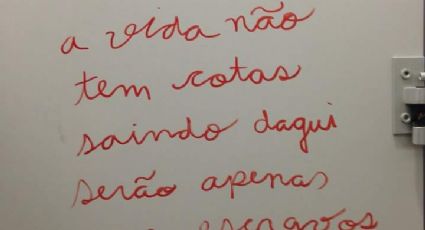 a vida não
tem cotas
saindo daqui
serão apenas
escravos